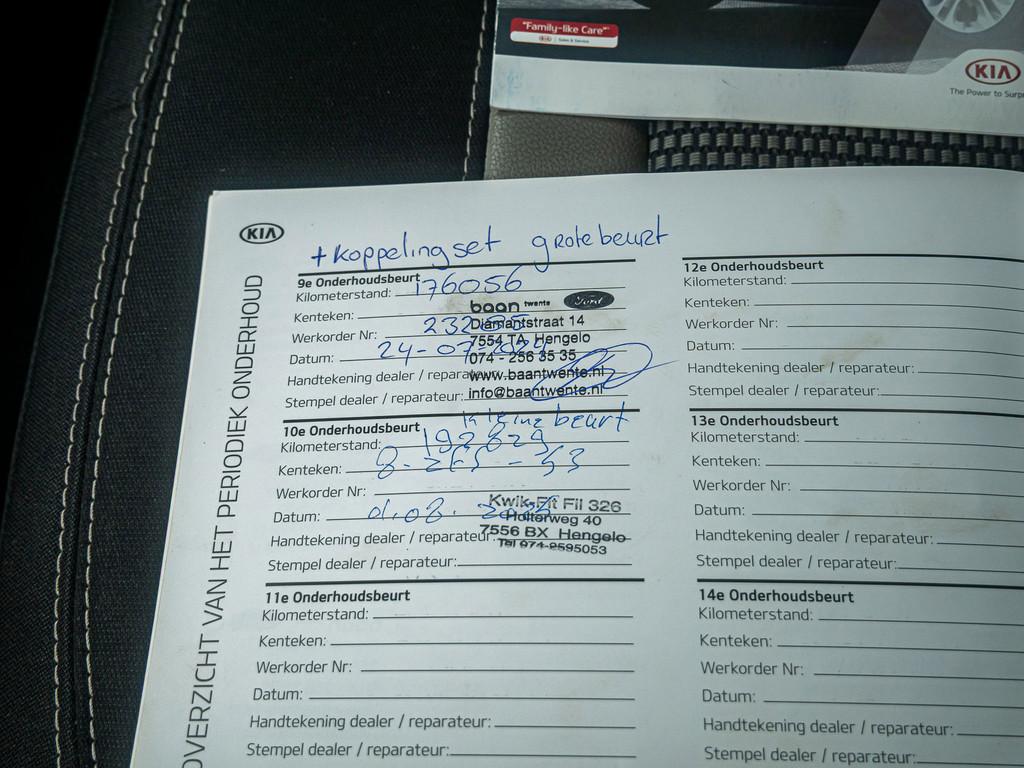 "Family-like Care"
KIA
The Power to Surp
KIA
OVERZICHT VAN HET PERIODIEK ONDERHOUD
+ koppelingset grote beurt
9e Onderhoudsbeurt
Kilometerstand: 176056
Kenteken:
baan twente Ford
Werkorder Nr:
Diamantstraat 14
7554 TA Hengelo
Datum: 24-07-2024
074 - 256 35 35
Handtekening dealer / reparateur:
www.baantwente.nl
Stempel dealer / reparateur:
info@baantwente.nl
kleine beurt
10e Onderhoudsbeurt
Kilometerstand: 192829
Kenteken:
Werkorder Nr:
Kwik-Fit Fil 326
Datum: 01.08.
Holterweg 40
Handtekening dealer / reparateur:
7556 BX Hengelo
Tel 074-2595053
Stempel dealer / reparateur:
11e Onderhoudsbeurt
Kilometerstand:
Kenteken:
Werkorder Nr:
Datum:
Handtekening dealer / reparateur:
Stempel dealer / reparateur:
12e Onderhoudsbeurt
Kilometerstand:
Kenteken:
Werkorder Nr:
Datum:
Handtekening dealer / reparateur:
Stempel dealer / reparateur:
13e Onderhoudsbeurt
Kilometerstand:
Kenteken:
Werkorder Nr:
Datum:
Handtekening dealer / reparateur:
Stempel dealer / reparateur:
14e Onderhoudsbeurt
Kilometerstand:
Kenteken:
Werkorder Nr:
Datum:
Handtekening dealer / reparateur:
Stempel dealer / reparateur: